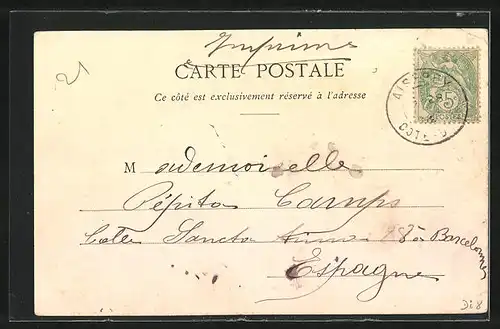 21
Imprimé
CARTE POSTALE
Ce côté est exclusivement réservé à l'adresse
5
Mademoiselle
Pépita Camps
Calle Sancta Anna 28 à Barcelone
Espagne
Di 8